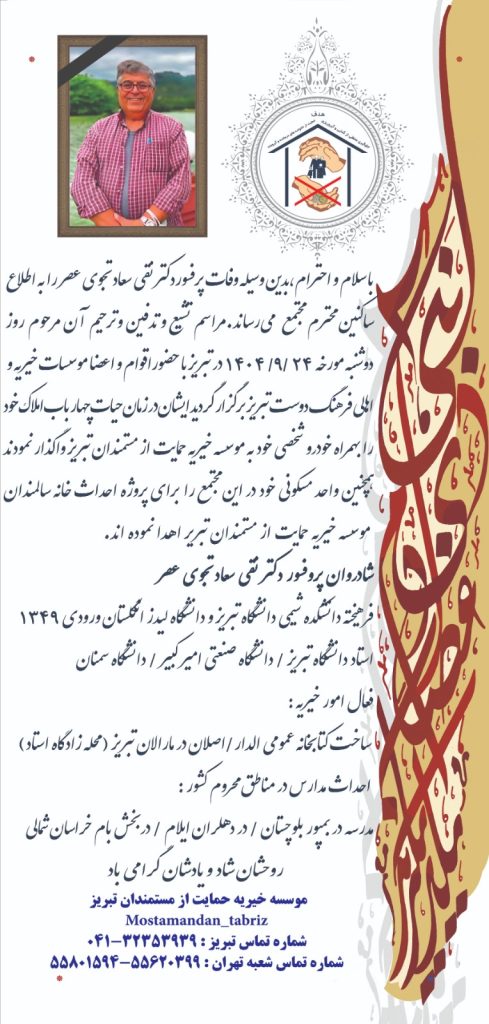 هدف
با سلام و احترام، بدین وسیله وفات پرفسور دکتر نقی سعادتجوی عصر را به اطلاع
ساکنین محترم مجتمع می‌رساند. مراسم تشیع و تدفین و ترحیم آن مرحوم روز
دوشنبه مورخه ۱۴۰۴/۹/۲۴ در تبریز با حضور اقوام و اعضا موسسات خیریه و
اهالی فرهنگ دوست تبریز برگزار گردید ایشان در زمان حیات چهار باب املاک خود
را بهمراه خودرو شخصی خود به موسسه خیریه حمایت از مستمندان تبریز واگذار نمودند
همچنین واحد مسکونی خود در این مجتمع را برای پروژه احداث خانه سالمندان
موسسه خیریه حمایت از مستمندان تبریز اهدا نموده اند.
شادروان پروفسور دکتر نقی سعادتجوی عصر
فرهیخته دانشکده شیمی دانشگاه تبریز و دانشگاه لیدز انگلستان ورودی ۱۳۴۹
استاد دانشگاه تبریز / دانشگاه صنعتی امیرکبیر / دانشگاه سمنان
فعال امور خیریه :
ساخت کتابخانه عمومی الدار / اصلان در مارالان تبریز (محله زادگاه استاد)
احداث مدارس در مناطق محروم کشور :
مدرسه در بمپور بلوچستان / در دهلران ایلام / در بخش بام خراسان شمالی
روحشان شاد و یادشان گرامی باد
موسسه خیریه حمایت از مستمندان تبریز
Mostamandan_tabriz
شماره تماس تبریز : ۳۲۳۵۳۹۳۹-۰۴۱
شماره تماس شعبه تهران : ۵۵۶۲۰۳۹۹-۵۵۸۰۱۵۹۴